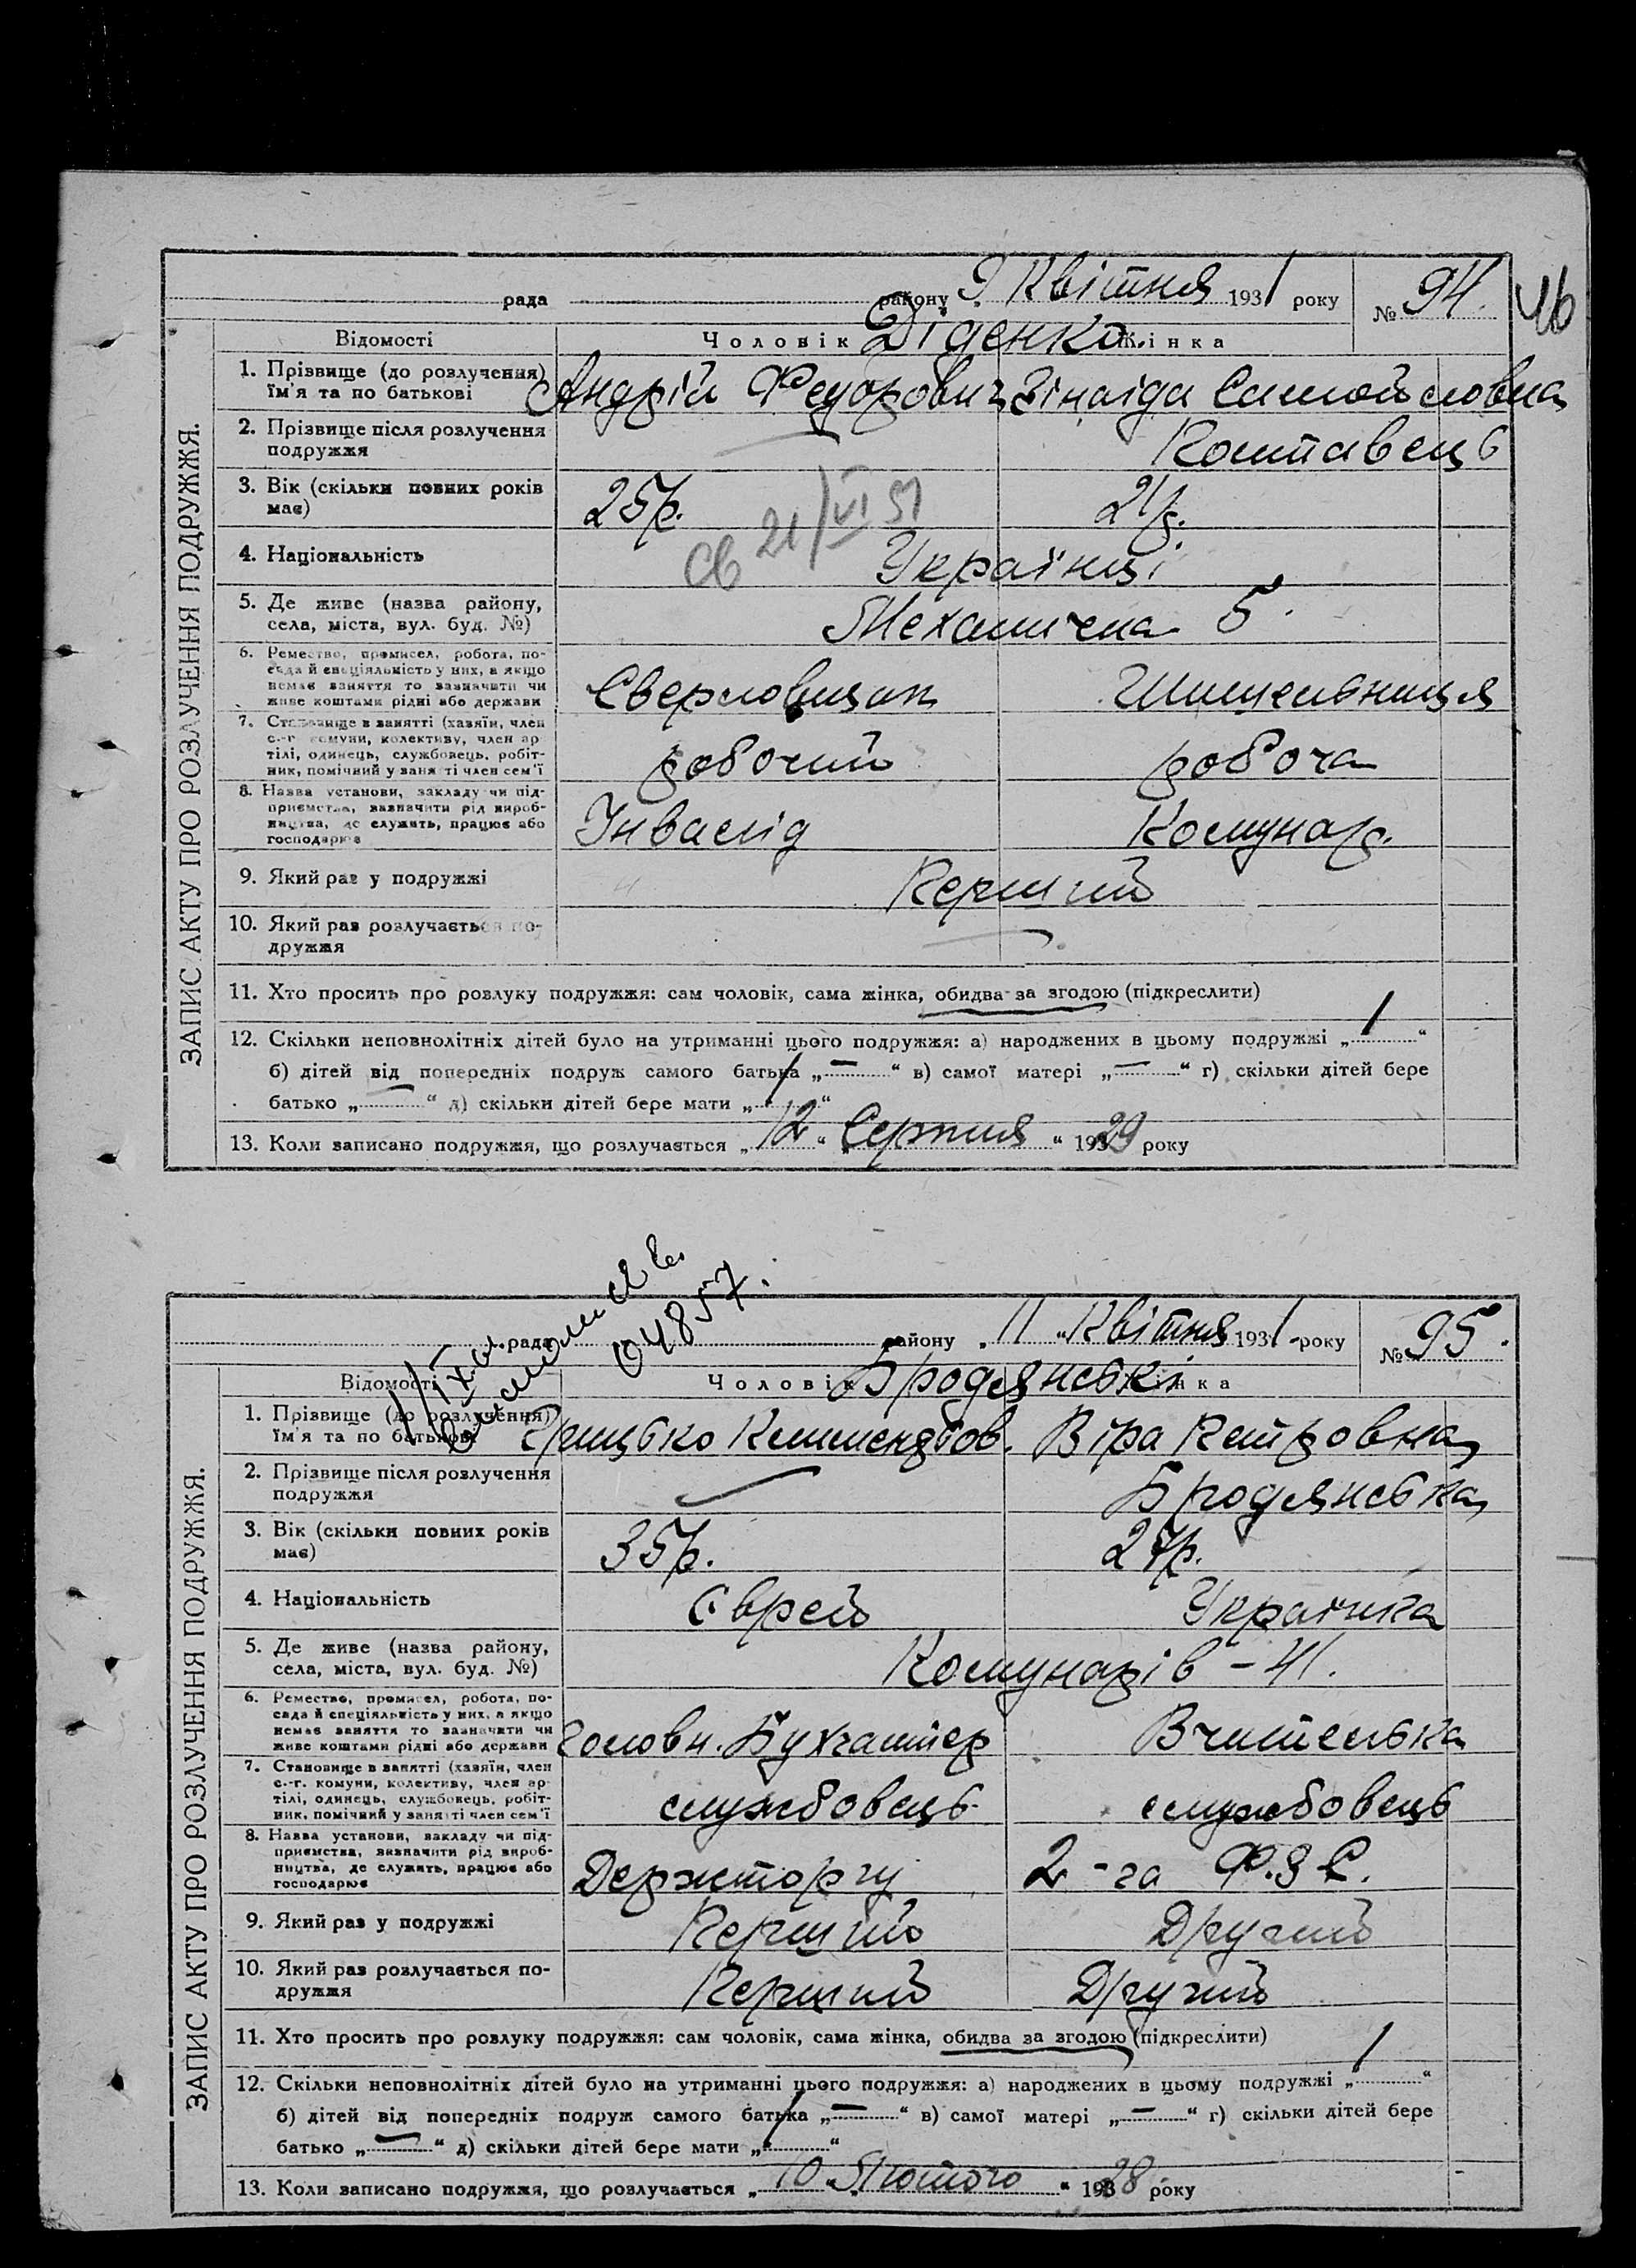 рада району „9 Квітня 1931 року № 94. 46
Відомості Чоловік Діденко. Жінка
ЗАПИС АКТУ ПРО РОЗЛУЧЕННЯ ПОДРУЖЖЯ.
1. Прізвище (до розлучення) Андрій Федорович Зінаіда Самойловна
ім'я та по батькові
2. Прізвище після розлучення
подружжя
3. Вік (скільки повних років 25р. 21р.
має)
св 21/VI 51
4. Національність Українці
5. Де живе (назва району, Механична 5.
села, міста, вул. буд. №)
6. Ремество, промисел, робота, по-
сада й спеціяльність у них, а якщо
немає заняття то зазначити чи Сверловщик Шишельниця
живе коштами рідні або держави
7. Становище в занятті (хазяїн, член
с.-г. комуни, колективу, член ар-
тілі, одинець, службовець, робіт- робочий робоча
ник, помічний у занятті член сем'ї
8. Назва установи, закладу чи під-
приємства, зазначити рід вироб-
ництва, де служить, працює або Інвалід Комунар.
господарює
9. Який раз у подружжі Перший
10. Який раз розлучається по-
дружжя
11. Хто просить про розлуку подружжя: сам чоловік, сама жінка, обидва за згодою (підкреслити)
12. Скільки неповнолітніх дітей було на утриманні цього подружжя: а) народжених в цьому подружжі „1“
б) дітей від попередніх подруж самого батька „—“ в) самої матері „—“ г) скільки дітей бере
батько „—“ д) скільки дітей бере мати „1“
13. Коли записано подружжя, що розлучається „12“ Серпня “ 1929 року
04857.
рада району „11 „Квітня 1931 року № 95.
Відомості Чоловік Бродянські Жінка
ЗАПИС АКТУ ПРО РОЗЛУЧЕННЯ ПОДРУЖЖЯ.
1. Прізвище (до розлучення) Грицько Климентьов. Віра Петровна
ім'я та по батькові
2. Прізвище після розлучення Бродянська
подружжя
3. Вік (скільки повних років 35р. 27р.
має)
4. Національність Єврей Українка
5. Де живе (назва району, Комунарів - 41.
села, міста, вул. буд. №)
6. Ремество, промисел, робота, по-
сада й спеціяльність у них, а якщо
немає заняття то зазначити чи Головн. Бухгалтер Вчителька
живе коштами рідні або держави
7. Становище в занятті (хазяїн, член
с.-г. комуни, колективу, член ар-
тілі, одинець, службовець, робіт- службовець службовець
ник, помічний у занятті член сем'ї
8. Назва установи, закладу чи під-
приємства, зазначити рід вироб-
ництва, де служить, працює або Держторгу 2-га Ф.З.С.
господарює
9. Який раз у подружжі Перший Другий
10. Який раз розлучається по- Перший Другий
дружжя
11. Хто просить про розлуку подружжя: сам чоловік, сама жінка, обидва за згодою (підкреслити)
12. Скільки неповнолітніх дітей було на утриманні цього подружжя: а) народжених в цьому подружжі „1“
б) дітей від попередніх подруж самого батька „—“ в) самої матері „—“ г) скільки дітей бере
батько „—“ д) скільки дітей бере мати „1“
13. Коли записано подружжя, що розлучається „10 „Лютого “ 1928 року